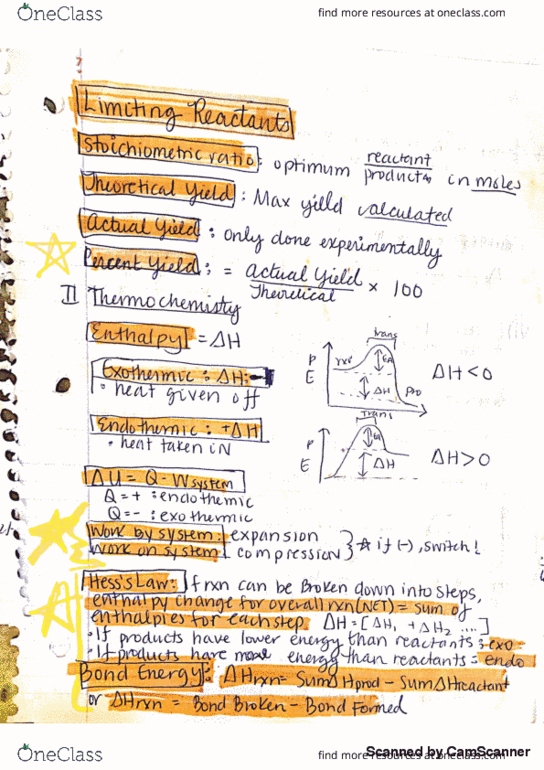 OneClass
find more resources at oneclass.com
Limiting Reactants
Stoichiometric ratio: optimum reactant
products in moles
Theoretical Yield: Max yilld calculated
Actual Yield: only done experimentally
Percent Yield: = actual yield
Theoretical × 100
II Thermochemistry
Enthalpy = ΔH
Exothermic: ΔH: -
• heat given off
P
E
rxt
trans
EA
ΔH
pro
ΔH < 0
Endothermic: +ΔH
• heat taken in
P
E
trans
EA
ΔH
ΔH > 0
ΔU = Q - W system
Q = + : endothermic
Q = - : exothermic
Work by system: expansion
Work on system: compression } ☆ if (-), switch!
Hess's Law: if rxn can be Broken down into steps,
enthalpy change for overall rxn (NET) = sum of
enthalpies for each step ΔH = [ΔH₁ + ΔH₂ ....]
• If products have lower energy than reactants = exo
• If products have more energy than reactants = endo
Bond Energy: ΔHrxn = SumΔHprod - SumΔHreactant
or ΔHrxn = Bond Broken - Bond Formed
Scanned by CamScanner
OneClass
find more resources at oneclass.com